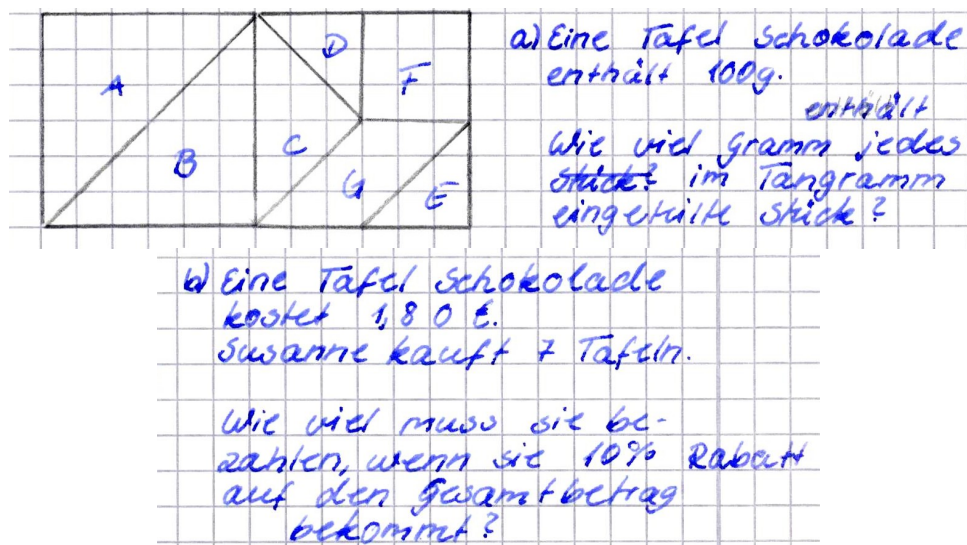 A
B
C
D
F
G
E
a) Eine Tafel Schokolade
enthält 100g.
enthält
Wie viel Gramm jedes
Stück? im Tangramm
eingeteilte Stück?
b) Eine Tafel Schokolade
kostet 1,80 €.
Susanne kauft 7 Tafeln.
Wie viel muss sie be-
zahlen, wenn sie 10% Rabatt
auf den Gesamtbetrag
bekommt?